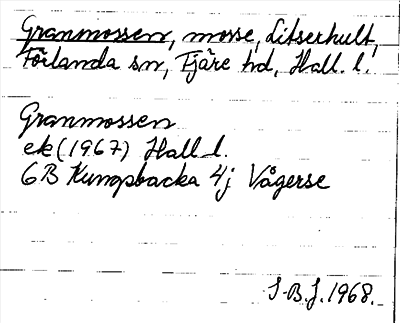 Granmossen, mosse, Litserhult,
Förlanda sn, Fjäre hd, Hall. l.
Granmossen
ek (1967) Hall l.
6B Kungsbacka 4j Vågerse
S.B.J. 1968.